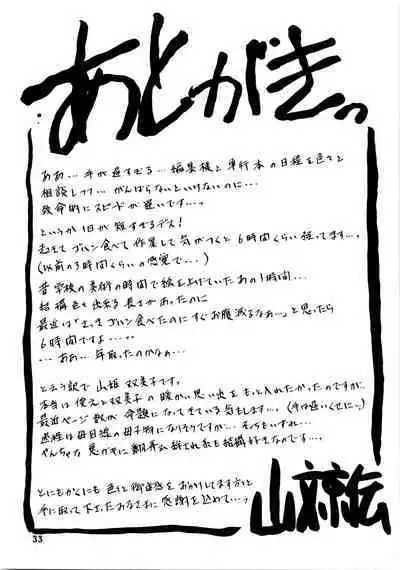 あとがきっ
ああ…手が遅すぎる…編集様と単行本の日程を色々と
相談しつつ…がんばらないといけないのに…
致命的にスピードが遅いです…っ
というか1日が短すぎるデス!
起きてゴハン食べて作業して気がつくと6時間くらい経ってます…っ
(以前の3時間くらいの感覚で…)
昔学校の美術の時間で絵を上げていたあの1時間…
結構色々出来る長さがあったのに
最近は「さっきゴハン食べたのにすぐお腹減るなぁ…」と思ったら
6時間ですよ……
…ああ…年取ったのかなぁ…
という訳で山姫双美子です。
本当は
双美子の暖かい思い出をもっと入れたかったのですが
最近ページ数が
になってきている気もします…。(手は遅いくせに…)
母子物になりそうですが…そちらもいずれ…
やんちゃな悪ガキに翻弄
も結構好きなのです…っ
とにもかくにも色々と御迷惑をおかけしてます方々と
手に取って下さったみなさまに感謝を込めて…っ
33